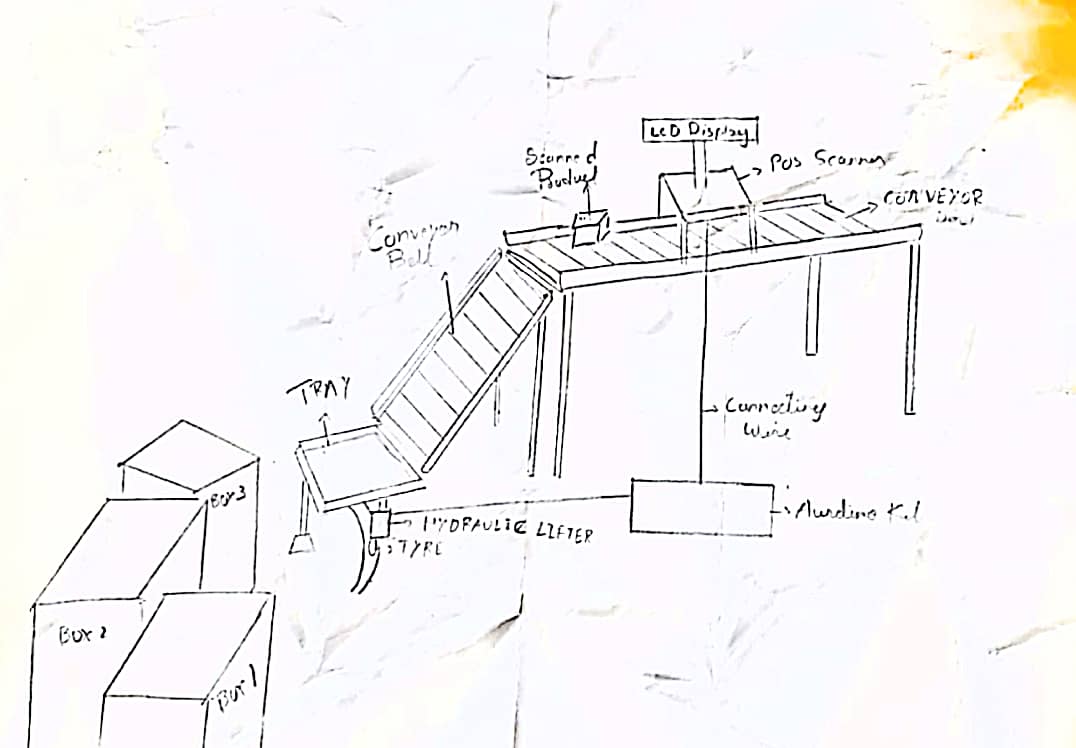 LCD Display
Scanned
Product
POS Scanner
CONVEYOR
Conveyor
Belt
TRAY
Connecting
Wire
BOX 3
HYDRAULIC LIFTER
TYRE
Box 2
Box 1